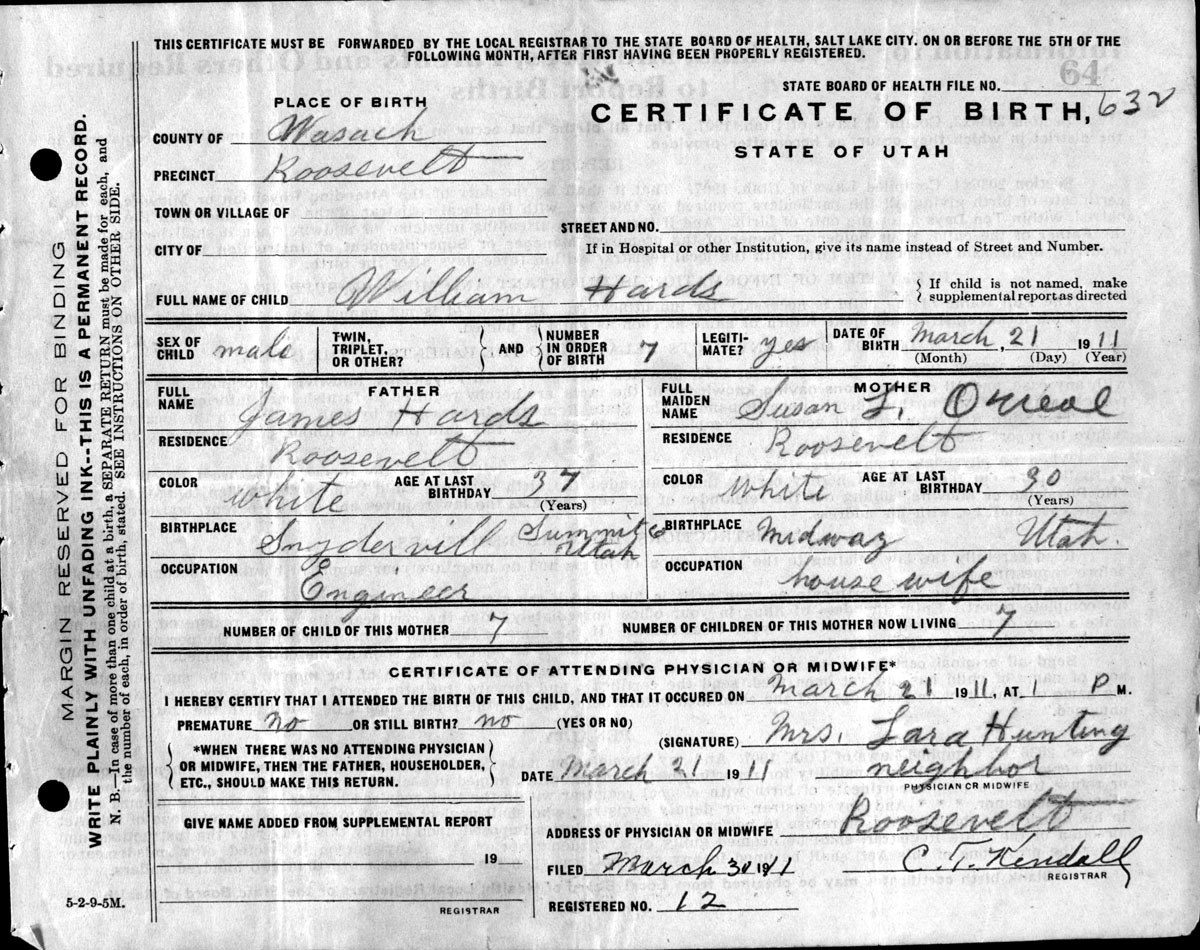 THIS CERTIFICATE MUST BE FORWARDED BY THE LOCAL REGISTRAR TO THE STATE BOARD OF HEALTH, SALT LAKE CITY. ON OR BEFORE THE 5TH OF THE
FOLLOWING MONTH, AFTER FIRST HAVING BEEN PROPERLY REGISTERED.
64
STATE BOARD OF HEALTH FILE NO.
PLACE OF BIRTH
CERTIFICATE OF BIRTH, 632
STATE OF UTAH
COUNTY OF Wasach
PRECINCT Roosevelt
TOWN OR VILLAGE OF
STREET AND NO.
CITY OF
If in Hospital or other Institution, give its name instead of Street and Number.
FULL NAME OF CHILD William Hards
If child is not named, make
supplemental report as directed
SEX OF CHILD male
TWIN, TRIPLET, OR OTHER?
AND
NUMBER IN ORDER OF BIRTH 7
LEGITI-MATE? yes
DATE OF BIRTH March, 21 1911
(Month) (Day) (Year)
FATHER
FULL NAME James Hards
RESIDENCE Roosevelt
COLOR White AGE AT LAST BIRTHDAY 37
(Years)
BIRTHPLACE Snydervill Summit Co Utah
OCCUPATION Engineer
MOTHER
FULL MAIDEN NAME Susan L.
RESIDENCE Roosevelt
COLOR White AGE AT LAST BIRTHDAY 30
(Years)
BIRTHPLACE Midway Utah.
OCCUPATION house wife
NUMBER OF CHILD OF THIS MOTHER 7 NUMBER OF CHILDREN OF THIS MOTHER NOW LIVING 7
CERTIFICATE OF ATTENDING PHYSICIAN OR MIDWIFE*
I HEREBY CERTIFY THAT I ATTENDED THE BIRTH OF THIS CHILD, AND THAT IT OCCURED ON March 21 1911, AT 1 P M.
PREMATURE no OR STILL BIRTH? no (YES OR NO)
*WHEN THERE WAS NO ATTENDING PHYSICIAN
OR MIDWIFE, THEN THE FATHER, HOUSEHOLDER,
ETC., SHOULD MAKE THIS RETURN.
(SIGNATURE) Mrs. Lara Hunting
DATE March 21 1911 neighbor
PHYSICIAN OR MIDWIFE
GIVE NAME ADDED FROM SUPPLEMENTAL REPORT
19
REGISTRAR
ADDRESS OF PHYSICIAN OR MIDWIFE Roosevelt
FILED March 30 1911 C. T. Kendall
REGISTRAR
REGISTERED NO. 12
5-2-9-5M.
MARGIN RESERVED FOR BINDING
WRITE PLAINLY WITH UNFADING INK--THIS IS A PERMANENT RECORD.
N. B.—In case of more than one child at a birth, a SEPARATE RETURN must be made for each, and
the number of each, in order of birth, stated. SEE INSTRUCTIONS ON OTHER SIDE.